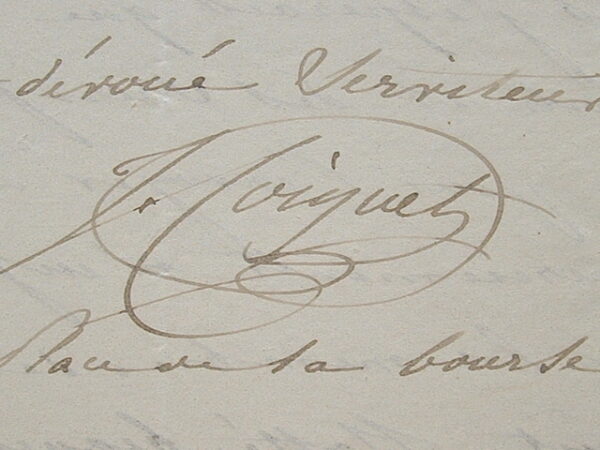 dévoué Serviteur
J. Coignet
Place de la bourse